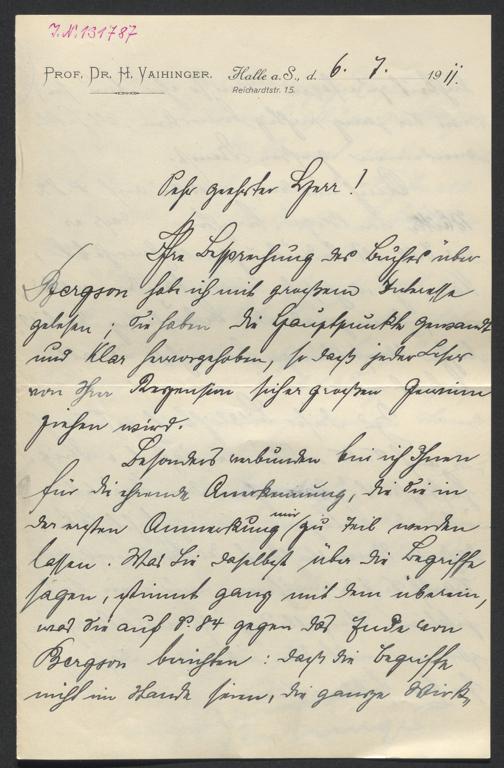 J.N. 131787
PROF. DR. H. VAIHINGER. Halle a.S., d. 6. 7. 1911.
Reichardtstr. 15.
Sehr geehrter Herr!
Ihre Besprechung des Buches über
Bergson habe ich mit großem Interesse
gelesen; Sie haben die Hauptpunkte gewandt
und klar hervorgehoben, so daß jeder Leser
von Ihrer Rezension sicher großen Gewinn
ziehen wird.
Besonders verbunden bin ich Ihnen
für die ehrende Anerkennung, die Sie in
der ersten Anmerkung mir zu Teil werden
lassen. Was Sie daselbst über die Begriffe
sagen, stimmt ganz mit dem überein,
was Sie auf S. 84 gegen das Ende von
Bergson berichten: daß die Begriffe
nicht im Stande seien, die ganze Wirk-